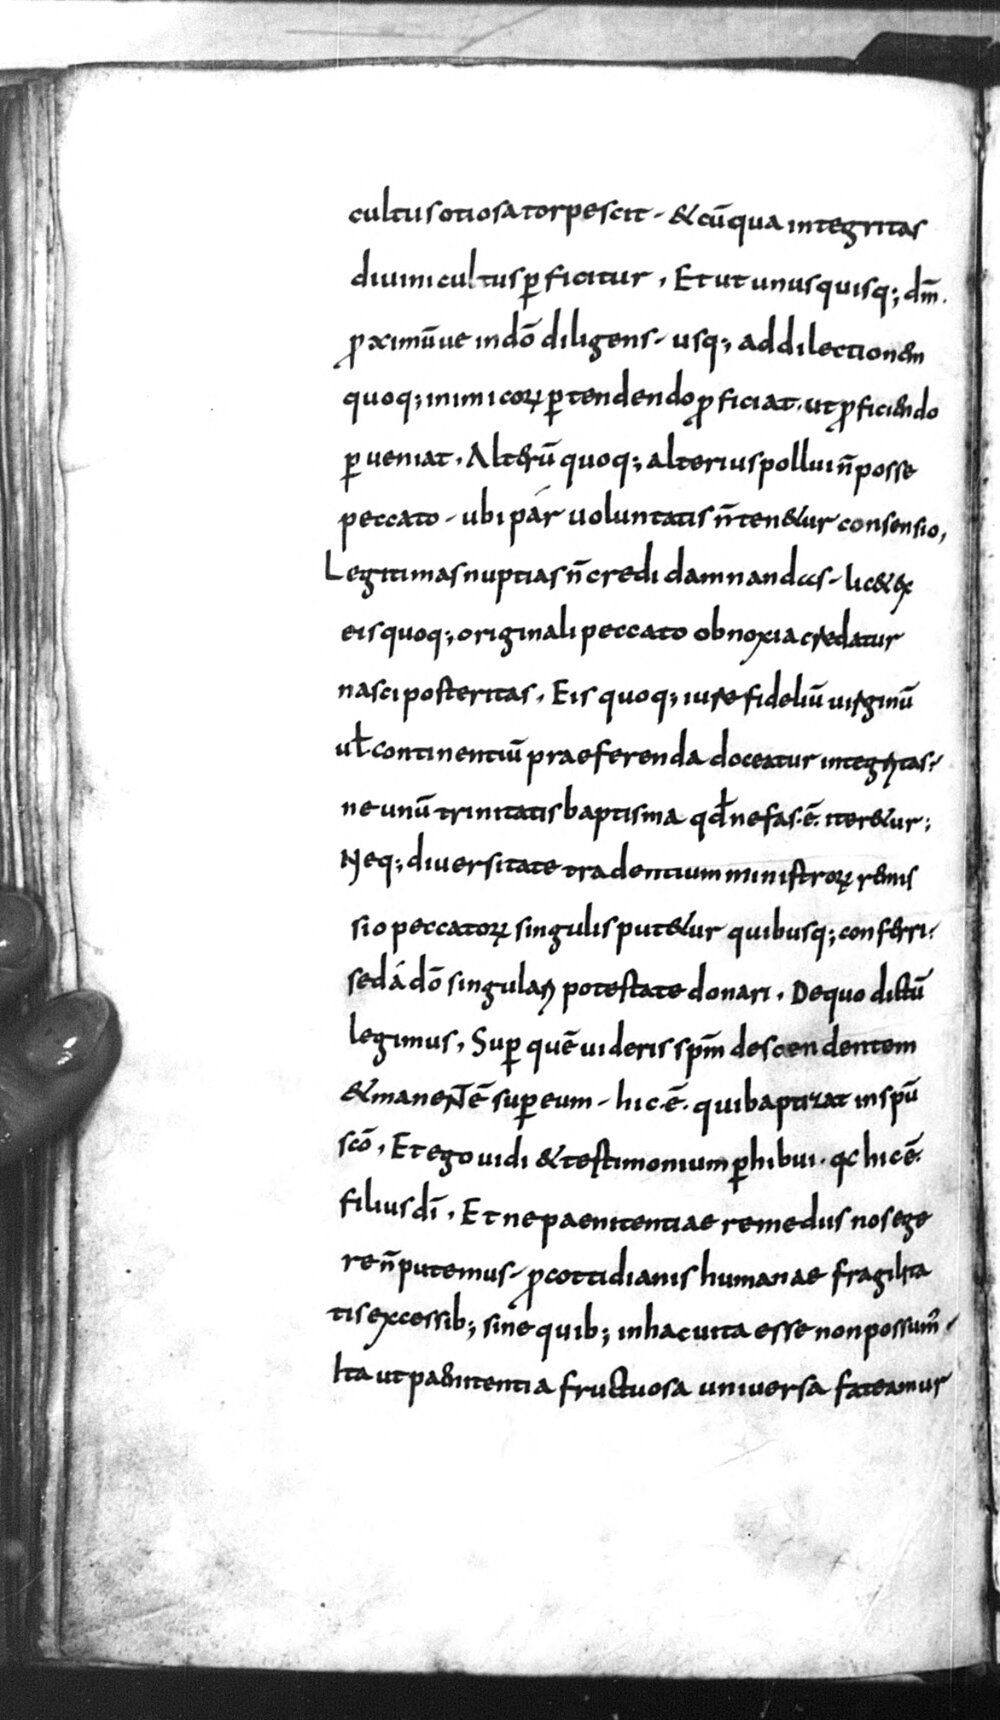 cultus otiosa torpescit - & cũ qua integritas
diuini cultus ꝑficitur, Et ut unusquisq; dm̄.
ꝓximũue in dō diligens - usq; ad dilectionem
quoq; inimicoꝝ ꝑtendendo ꝓficiat. ut ꝓficiendo
ꝑueniat, Alterũ quoq; alterius pollui ñ posse
peccato - ubi pár uoluntatis ñ ten&ur consensio,
Legitimas nuptias ñ credi damnandas - lic& ex
eis quoq; originali peccato obnoxia credatur
nasci posteritas, Eis quoq; iure fideliũ uirginũ
uł continentiũ praeferenda doceatur integritas -
ne unũ trinitatis baptisma qđ nefas .ē. iter&ur;
Neq; diuersitate tradentium ministroꝝ remis
sio peccatoꝝ singulis put&ur quibusq; conferri -
sed á dō singulari potestate donari, De quo dictũ
legimus, Suꝑ quē uideris spm̄ descendentem
& manentē suꝑ eum - hic .ē. qui baptizat in spũ
scō, Et ego uidi & testimonium ꝑhibui. qc hic ē.
filius dī, Et ne paenitentiae remediis nos ege
re ñ putemus - ꝓ cottidianis humanae fragilita
tis excessib; sine quib; in hac uita esse non possum᾽ -
Ita ut paenitentia fructuosa uniuersa fateamur